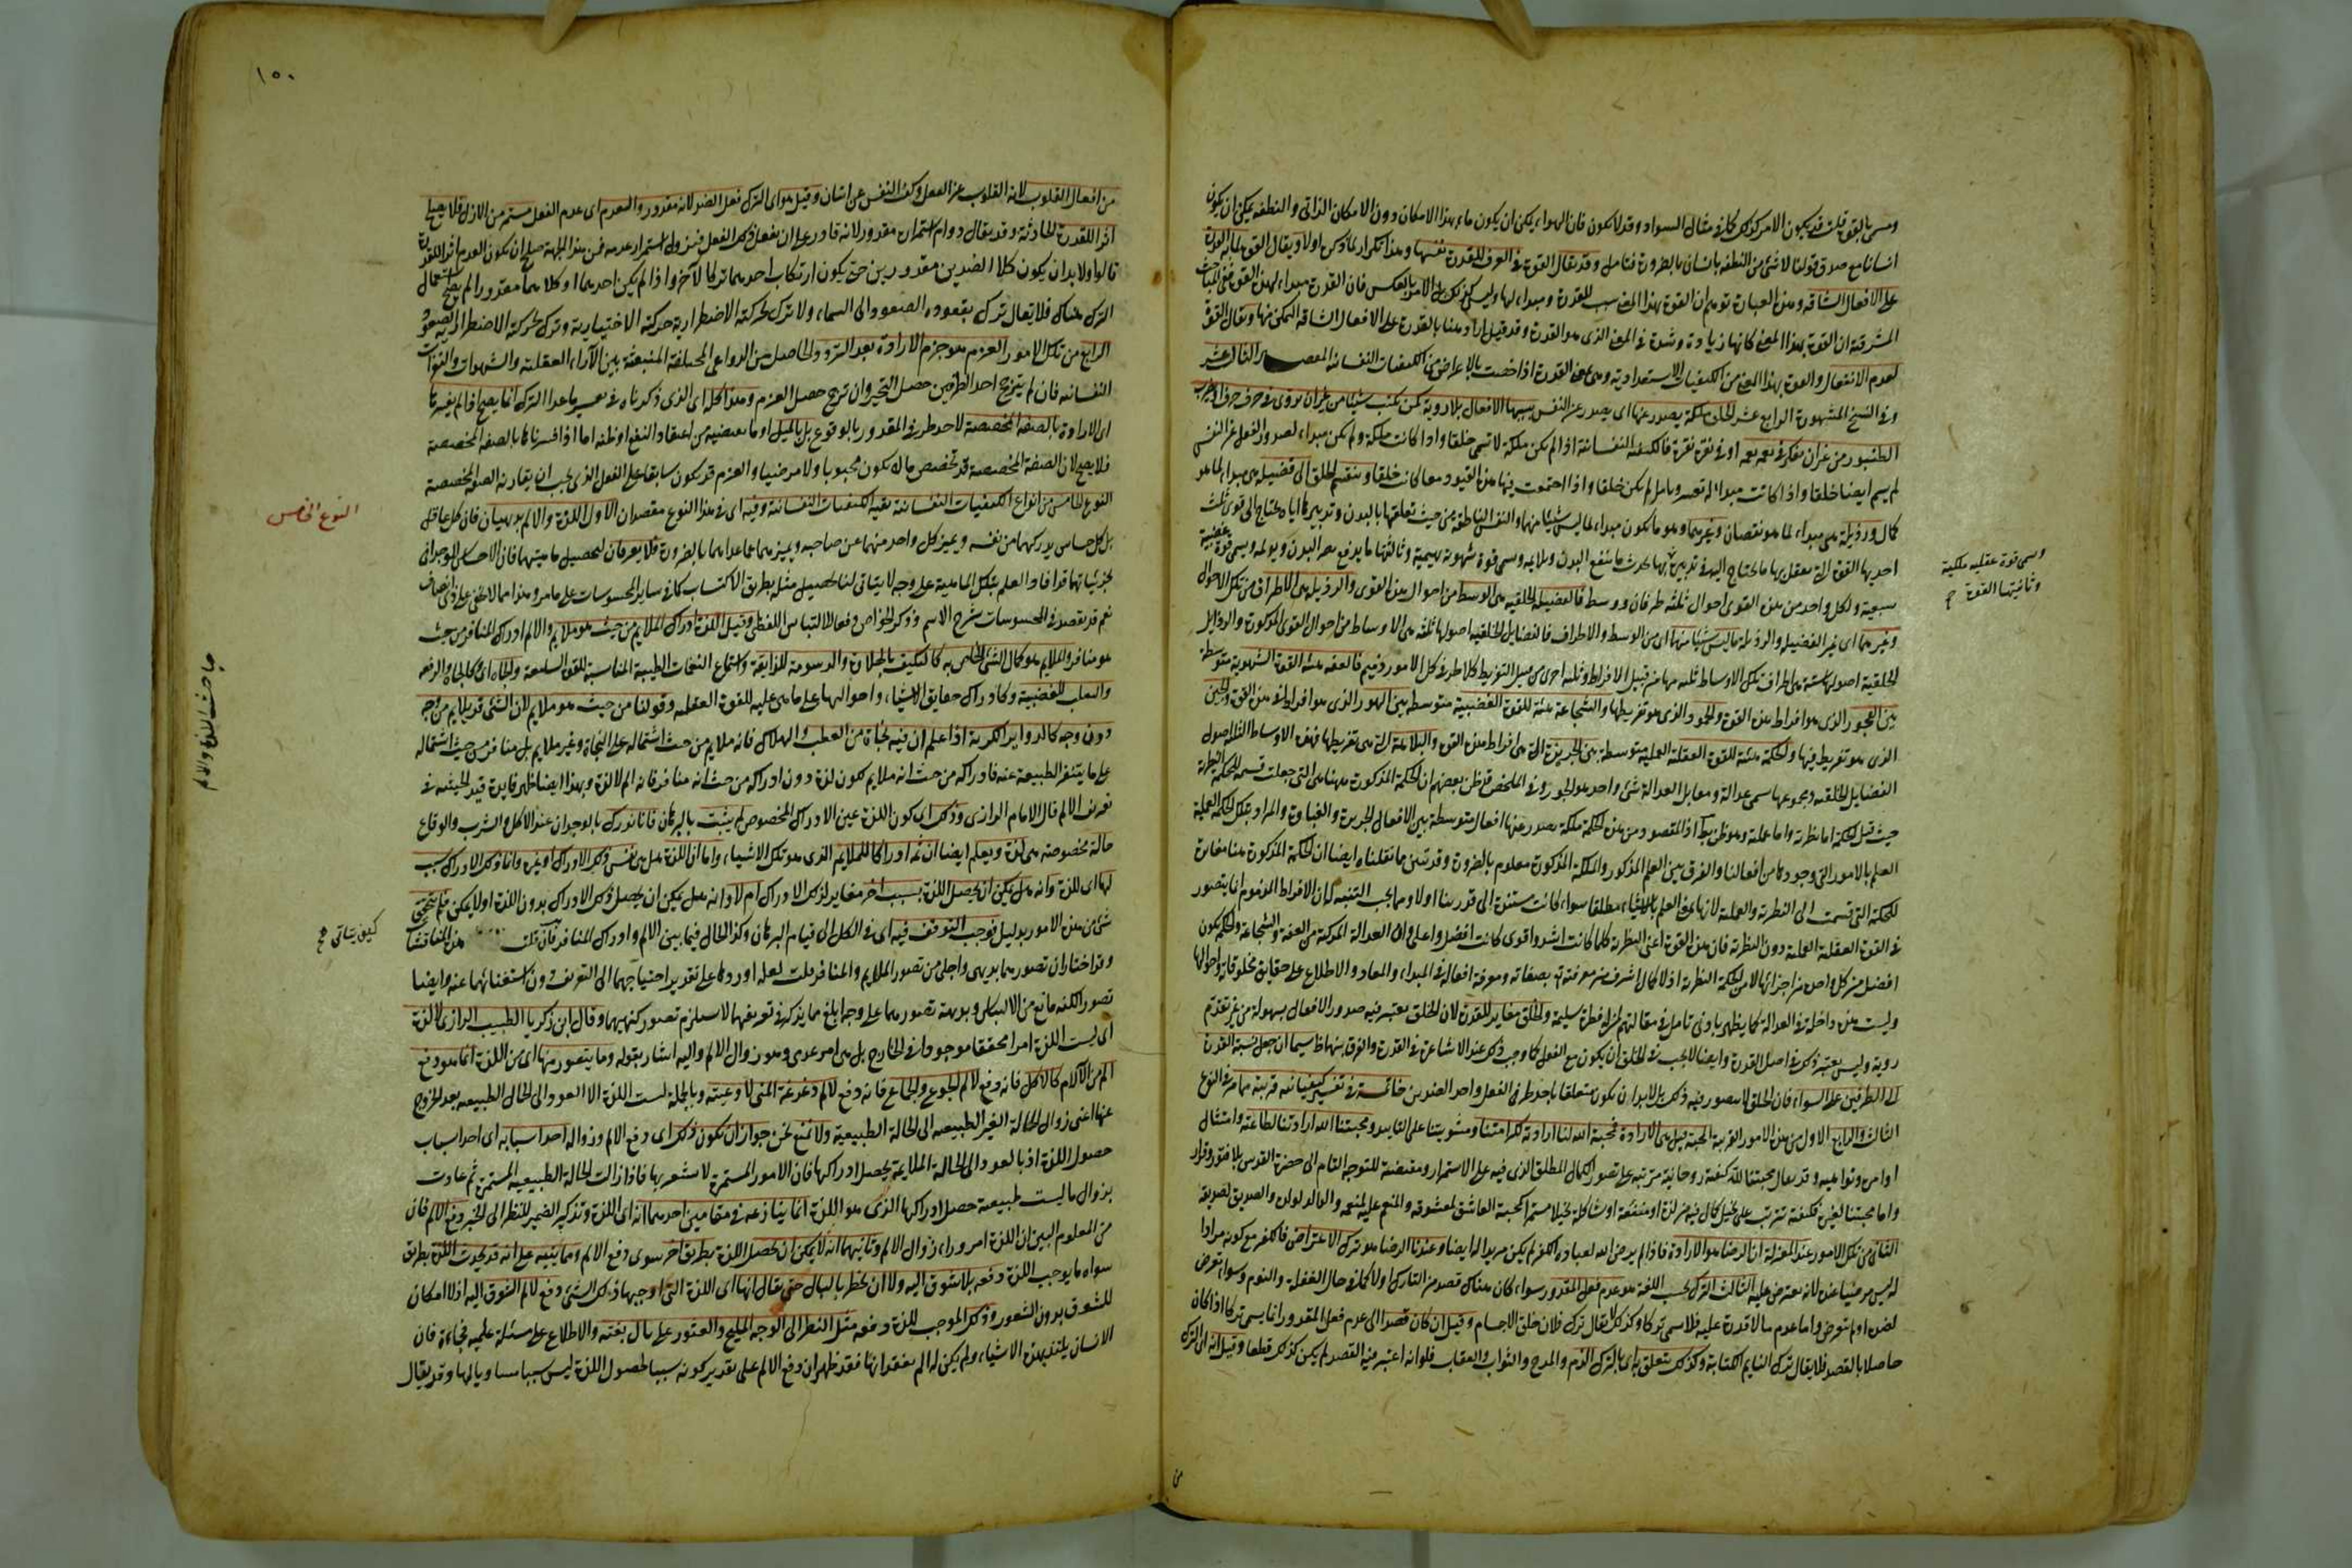 ويسمى بالقوة قلت قد يكون الامر كذلك كما في مثال السواد وقد لا يكون فان الهواء يمكن ان يكون ماء بهذا الامكان دون الامكان الذاتي والنطفة يمكن ان يكون
انسانا مع صدق قولنا لا شئ من النطفة بانسان بالضرورة فتامل وقد يقال القوة في العرف للقدرة نفسها وهذا تكرار لما ذكره اولا ويقال القوة لما به القدرة
على الافعال الشاقة وهذه العبارة توهم ان القوة بهذا المعنى سبب للقدرة ومبداء لها وليس كذلك بل الامر بالعكس فان القدرة مبداء لهذه القوة ففي المباحث
المشرقية ان القوة بهذا المعنى كانها زيادة وشدة في المعنى الذي هو القدرة وقد قيل اراد ههنا بالقدرة على الافعال الشاقة التمكن منها ويقال القوة
لعدم الانفعال والقوة بهذا المعنى من الكيفيات الاستعدادية وهي بمعنى القدرة اذا خصت بالاعراض من الكيفيات النفسانية المقصد الثالث عشر
وفي النسخ المشهورة الرابع عشر الخلق ملكة يصدر عنها اي يصدر عن النفس بسببها الافعال بلا روية كمن يكتب شيئا من غير ان يروي في حرف حرف او يضرب
الطنبور من غير ان يفكر في نغمة نغمة او في نقرة نقرة فالكيفية النفسانية اذا لم تكن ملكة لا تسمى خلقا واذا كانت ملكة ولم تكن مبداء لصدور الفعل عن النفس
لم يسم ايضا خلقا واذا كانت مبداء له بعسر وتامل لم يكن خلقا واذا اجتمعت فيها هذه القيود معا كانت خلقا وينقسم الخلق الى فضيلة هي مبداء لما هو
كمال ورذيلة هي مبداء لما هو نقصان وغيرهما وهو ما يكون مبداء لما ليس شيئا منهما والنفس الناطقة من حيث تعلقها بالبدن وتدبيرها اياه محتاج الى قوى ثلث
احديها القوة التي تعقل بها ما يحتاج اليه في تدبيره بها يحدث ما ينفع البدن ويلايمه ويسمى قوة شهوية بهيمية وثالثتها ما يدفع به ما يضر البدن ويولمه ويسمى قوة غضبية
ويسمى قوة عقلية ملكية
وثانيتها القوة التي صح
سبعية ولكل واحد من هذه القوى احوال ثلثة طرفان ووسط فالفضيلة الخلقية هي الوسط من احوال هذه القوى والرذيلة هي الاطراف من تلك الاحوال
وغيرهما اي غير الفضيلة والرذيلة ما ليس شيئا منهما اي من الوسط والاطراف فالفضايل الخلقية اصولها ثلثة هي الاوساط من احوال القوى المذكورة والرذايل
الخلقية اصولها ستة هي اطراف تلك الاوساط ثلثة منها من قبيل الافراط وثلثة اخرى من قبيل التفريط وكلا طرفي كل الامور ذميم فالعفة هيئة القوة الشهوية متوسطة
بين الفجور الذي هو افراط هذه القوة والخمود الذي هو تفريطها والشجاعة هيئة للقوة الغضبية متوسطة بين التهور الذي هو افراط في هذه القوة والجبن
الذي هو تفريط فيها والحكمة هيئة للقوة العقلية العملية متوسطة بين الجربزة التي هي افراط هذه القوة والبلاهة التي هي تفريطها فهذه الاوساط الثلثة اصول
الفضايل الخلقية ومجموعها يسمى عدالة ومقابل العدالة شئ واحد هو الجور وفي الملخص قد ظن بعضهم ان الحكمة المذكورة ههنا هي التي جعلت قسيمة للحكمة النظرية
حيث قيل الحكمة اما نظرية واما عملية وهو ظن بط اذ المقصود من هذه الحكمة ملكة يصدر عنها افعال متوسطة بين الافعال الجربزة والغباوة والمراد بتلك الحكمة العملية
العلم بالامور التي وجودها من افعالنا والفرق بين العلم المذكور والملكة المذكورة معلوم بالضرورة وقد تبين مما نقلناه ايضا ان الحكمة المذكورة ههنا مغايرة
للحكمة التي قسمت الى النظرية والعملية لانها بمعنى العلم بالاشياء مطلقا سواء كانت مستندة الى قدرتنا اولا ومما يجب التنبه له ان الافراط المذموم انما يتصور
في القوة العقلية العملية دون النظرية فان هذه القوة اعني النظرية كلما كانت اشد واقوى كانت افضل واعلى وان العدالة المركبة من العفة والشجاعة والحكمة تكون
افضل من كل واحد من اجزائها لا من الحكمة النظرية اذ لا كمال اشرف من معرفته تع بصفاته ومعرفة افعاله في المبداء والمعاد والاطلاع على حقايق مخلوقاته واحوالها
وليست هذه داخلة في العدالة كما يظهر بادنى تامل في مقالتهم لمن له فطرة سليمة والخلق مغاير للقدرة لان الخلق يعتبر فيه صدور الافعال بسهولة من غير تقدم
روية وليس يعتبر ذلك في اصل القدرة وايضا لا يجب في الخلق ان يكون مع الفعل كما وجب ذلك عند الاشاعرة في القدرة والفرق بينها ظ سيما ان جعل نسبة القدرة
الى الطرفين على السواء فان الخلق لا يتصور فيه ذلك بل لا بد ان يكون متعلقا باحد طرفي الفعل واحد الضدين خاتمة في تفسير كيفيات قريبة مما مر في النوع
الثالث والرابع الاول من هذه الامور القريبة المحبة قيل هي الارادة فمحبة الله لنا ارادته لكرامتنا ومثوبتنا على التاييد ومحبتنا لله ارادتنا لطاعته وامتثال
اوامره ونواهيه وقد يقال محبتنا لله كيفية روحانية مترتبة على تصور الكمال المطلق الذي فيه على الاستمرار ومقتضية للتوجه التام الى حضرة القدس بلا فتور وفرار
واما محبتنا لغيره فكيفية تترتب على تخيل كمال فيه من لذة او منفعة او مشاكلة تخيلا مستمرا كمحبة العاشق لمعشوقه والمنعم عليه لمنعمه والوالد لولده والصديق لصديقه
الثاني من تلك الامور عند المعتزلة ان الرضا هو الارادة فاذا لم يرض الله لعباده الكفر لم يكن مريدا له ايضا وعندنا الرضا هو ترك الاعتراض فالكفر مع كونه مرادا
له ليس مرضيا عنده لانه يعترض عليه الثالث الترك بحسب اللغة هو عدم فعل المقدور سواء كان هناك قصد من التارك اولا كما في حال الغفلة والنوم وسواء تعرض
لضده اولم يتعرض واما عدم ما لا قدرة عليه فلا يسمى تركا ولذلك لا يقال ترك فلان خلق الاجسام وقيل ان كان قصدا اي عدم فعل المقدور انما يسمى تركا اذا كان
حاصلا بالقصد فلا يقال ترك النايم الكتابة وكذلك يتعلق به اي بالترك الذم والمدح والثواب والعقاب فلولا انه اعتبر فيه القصد لم يكن كذلك قطعا وقيل انه اي الترك
من
١٥٠
من افعال القلوب لانه انصراف القلب عن الفعل وكف النفس عن اتيانه وقيل هو اي الترك فعل الضد لانه مقدور والعدم اي عدم الفعل مستمر من الازل فلا يصلح
اثرا للقدرة الحادثة وقد يقال دوام استمراره مقدور لانه قادر على ان يفعل ذلك الفعل فيزول استمرار عدمه فمن هذه الجهة صلح ان يكون العدم اثرا للقدرة
قالوا ولا بد ان يكون كلا الضدين مقدورين حتى يكون ارتكاب احدهما تركا للآخر واذا لم يكن احدهما او كلاهما مقدورا لم يصح استعمال
الترك هناك فلا يقال ترك بقعوده الصعود الى السماء ولا ترك بحركته الاضطرارية حركته الاختيارية وترك بحركته الاضطرارية الصعود
الرابع من تلك الامور العزم هو جزم الارادة بعد التردد الحاصل من الدواعي المختلفة المنبعثة من الآراء العقلية والشهوات والنفرات
النفسانية فان لم يترجح احد الطرفين حصل التحير وان ترجح حصل العزم وهذا كله اي الذي ذكرناه في تفسير ما عدا الترك انما يصح اذا لم يفسر بها
اي الارادة بالصفة المخصصة لاحد طرفي المقدور بالوقوع بل بالميل او ما يقتضيه من اعتقاد النفع او ظنه اما اذا فسرناها بالصفة المخصصة
فلا يصح لان الصفة المخصصة قد تخصص ما لا يكون محبوبا ولا مرضيا والعزم قد يكون سابقا على الفعل الذي يجب ان يقارنه الصفة المخصصة
النوع الخامس
النوع الخامس من انواع الكيفيات النفسانية بقية الكيفيات النفسانية وفيه اي في هذا النوع مقصدان الاول اللذة والالم بديهيان فان كل عاقل
بل كل حساس يدركهما من نفسه ويميز كل واحد منهما عن صاحبه ويميزهما عما عداهما بالضرورة فلا يعرفان لتحصيل ماهيتهما فان الاحساس الوجداني
بجزئياتهما قد افاد العلم بتلك الماهية على وجه لا يتاتى لنا تحصيل مثله بطريق الاكتساب كما في ساير المحسوسات على ما مر وهذا مما لا يخفى على ذي انصاف
نعم قد يقصد في المحسوسات شرح الاسم وذكر الخواص دفعا للالتباس اللفظي وقيل اللذة ادراك الملايم من حيث هو ملايم والالم ادراك المنافر من حيث
هو منافر والملايم هو كمال الشئ الخاص به كالتكيف بالحلاوة والدسومة للذايقة واستماع النغمات الطيبة المناسبة للقوة السامعة والجاه اي كالجاه والرفعة
والتغلب للغضبية وكادراك حقايق الاشياء واحوالها على ما هي عليه للقوة العقلية وقولنا من حيث هو ملايم لان الشئ قد يلايم من وجه
مباحث اللذة والالم
دون وجه كالدواء الكريه اذا علم ان فيه نجاة من العطب والهلاك فانه ملايم من حيث اشتماله على النجاة وغير ملايم بل منافر من حيث اشتماله
على ما يتنفر الطبيعة عنه فادراكه من حيث انه ملايم يكون لذة دون ادراكه من حيث انه منافر فانه الم لا لذة وبهذا ايضا ظهر فايدة قيد الحيثية في
تعريف الالم قال الامام الرازي وذلك اي كون اللذة عين الادراك المخصوص لم يثبت بالبرهان فانا ندرك بالوجدان عند الاكل والشرب والوقاع
حالة مخصوصة هي لذة ويعلم ايضا ان ثمة ادراكا للملايم الذي هو تلك الاشياء واما ان اللذة هل هي نفس ذلك الادراك او غيره وانما ذلك الادراك سبب
لها اي للذة وانه هل يمكن ان يحصل اللذة بسبب آخر مغاير لذلك الادراك ام لا وانه هل يمكن ان يحصل ذلك الادراك بدون اللذة او لا يمكن فلم يتحقق
شئ من هذه الامور بدليل فوجب التوقف فيه اي في الكل الى قيام البرهان وكذا الحال فيما بين الالم وادراك المنافر فان قلت هذه المناقشات
كيف يتاتى صح
وقد اختار ان تصورهما بديهي واجلى من تصور الملايم والمنافر قلت لعله اوردها على تقدير احتياجهما الى التعريف دون استغنائهما عنه وايضا
تصور الكنه مانع من الالتباس وبديهة تصورهما على وجه ابلغ مما يذكر في تعريفهما لا يستلزم تصور كنههما وقال ابن زكريا الطبيب الرازي لا لذة
اي ليست اللذة امرا محققا موجودا في الخارج بل هي امر عدمي وهو زوال الالم واليه اشار بقوله وما يتصور منها اي من اللذة انما هو دفع
الم من الآلام كالاكل فانه دفع لالم الجوع والجماع فانه دفع لالم دغدغة المني لاوعيته وبالجملة ليست اللذة الا العود الى الحال الطبيعية بعد الخروج
عنها اعني زوال الحالة الغير الطبيعية الى الحالة الطبيعية ولا نمنع نحن جواز ان يكون ذلك اي دفع الالم وزواله احد اسبابه اي احد اسباب
حصول اللذة اذ بالعود الى الحالة الملايمة يحصل ادراكها فان الامور المستمرة لا يشعر بها فاذا زالت الحالة الطبيعية المستمرة ثم عادت
بزوال ما ليست طبيعية حصل ادراكها الذي هو اللذة انما ينازعه في مقامين احدهما انه اي اللذة وتذكير الضمير للنظر الى الخبر دفع الالم فان
من المعلوم البين ان اللذة امر وراء زوال الالم وثانيهما انه لا يمكن ان يحصل اللذة بطريق آخر سوى دفع الالم ومما ينبه على انه قد يحدث اللذة بطريق
سواه ما يوجب اللذة دفعة بلا شوق اليه ولا ان يخطر بالبال حتى يقال انها اي اللذة التي اوجبها ذلك الشئ دفع لالم الشوق اليه اذ لا امكان
للشوق بدون الشعور وذلك الموجب للذة دفعة مثل النظر الى الوجه المليح والعثور على مال بغتة والاطلاع على مسئلة علمية فجاءة فان
الانسان يلتذ بهذه الاشياء ولم يكن له الم بفقدانها فقد ظهر ان دفع الالم على تقدير كونه سببا لحصول اللذة ليس سببا مساويا لها وقد يقال